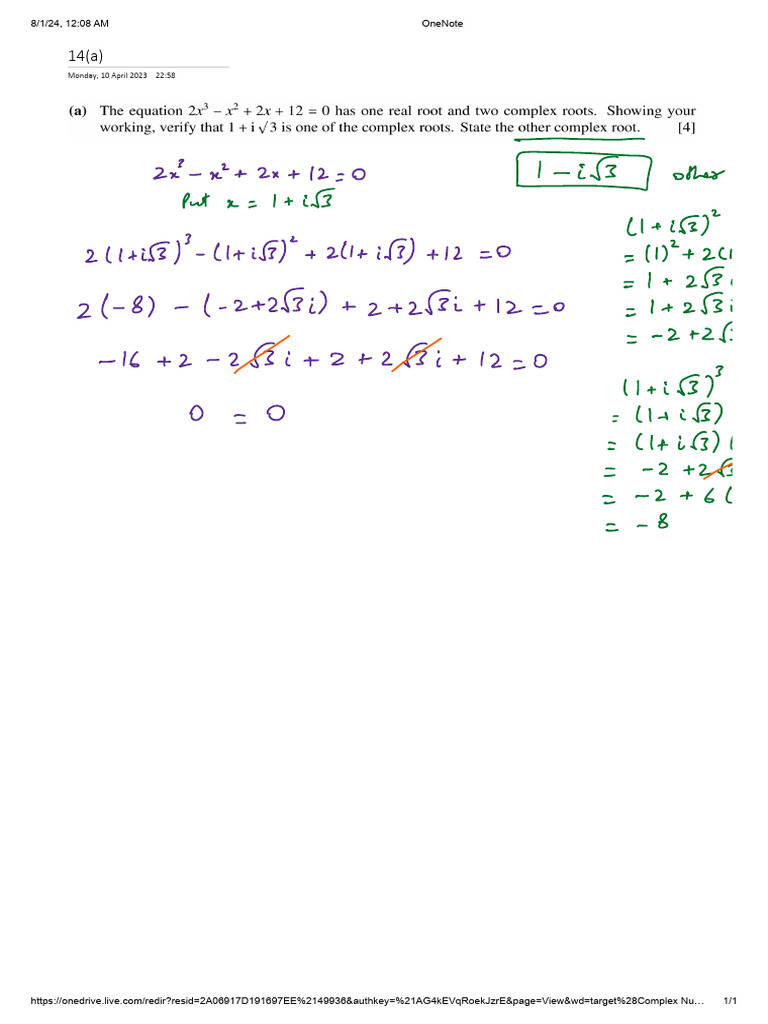 8/1/24, 12:08 AM OneNote
14(a)
Monday, 10 April 2023 22:58
(a) The equation 2x³ – x² + 2x + 12 = 0 has one real root and two complex roots. Showing your
working, verify that 1 + i √3 is one of the complex roots. State the other complex root. [4]
2x³ – x² + 2x + 12 = 0
1 – i√3 other
Put x = 1 + i√3
2(1+i√3)³ – (1+i√3)² + 2(1+i√3) + 12 = 0
2(-8) – (-2+2√3i) + 2+2√3i + 12 = 0
-16 + 2 – 2√3i + 2 + 2√3i + 12 = 0
0 = 0
(1+i√3)²
= (1)² + 2(1
= 1 + 2√3i
= 1 + 2√3i
= -2 + 2√3
(1+i√3)³
= (1+i√3)
= (1+i√3)(
= -2 + 2√3
= -2 + 6(
= -8
https://onedrive.live.com/redir?resid=2A06917D191697EE%2149936&authkey=%21AG4kEVqRoekJzrE&page=View&wd=target%28Complex Nu… 1/1